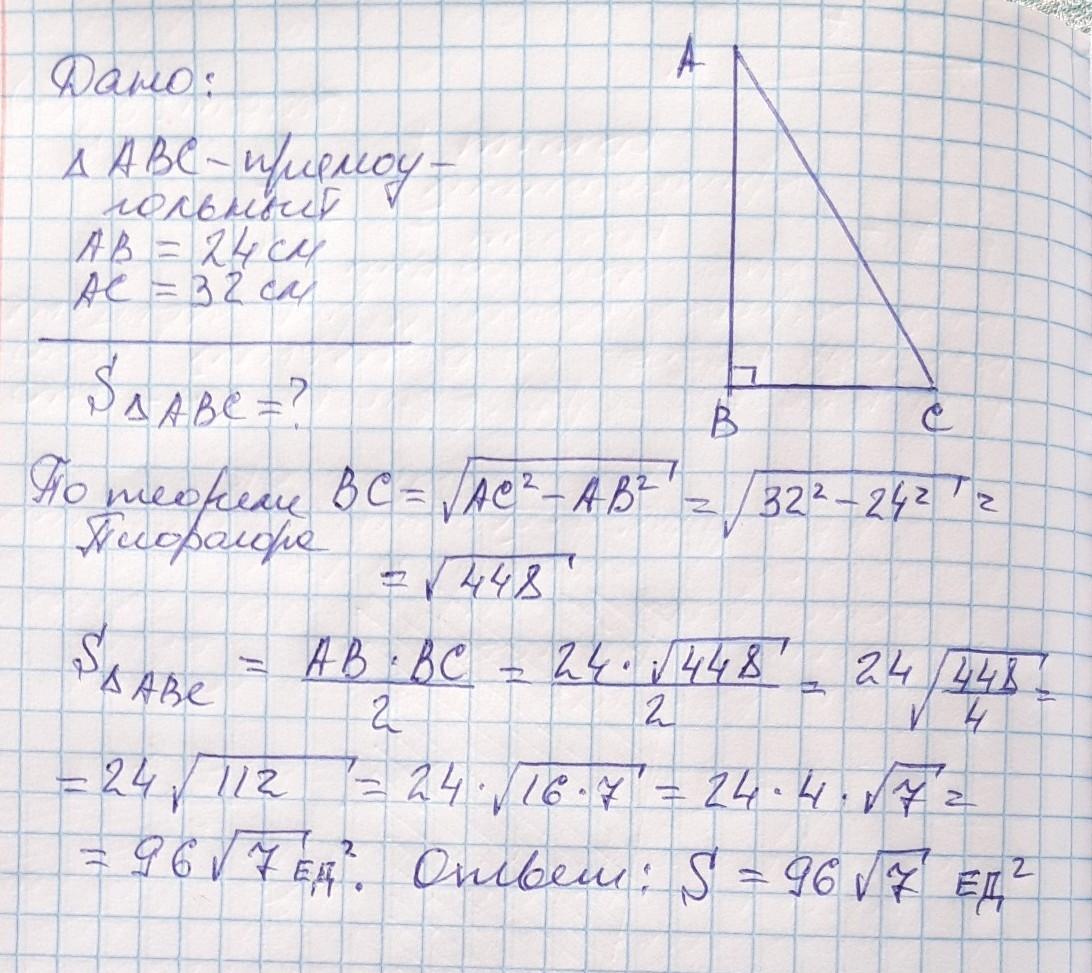 Дано:
Δ ABC - прямоу-
гольный
AB = 24 см
AC = 32 см
S Δ ABC = ?
A
B
C
По теореме BC = √(AC² - AB²) = √(32² - 24²) =
Пифагора
= √448
S Δ ABC = AB · BC / 2 = 24 · √448 / 2 = 24 √(448/4) =
= 24 √112 = 24 · √(16 · 7) = 24 · 4 · √7 =
= 96 √7 ЕД². Ответ: S = 96 √7 ЕД²